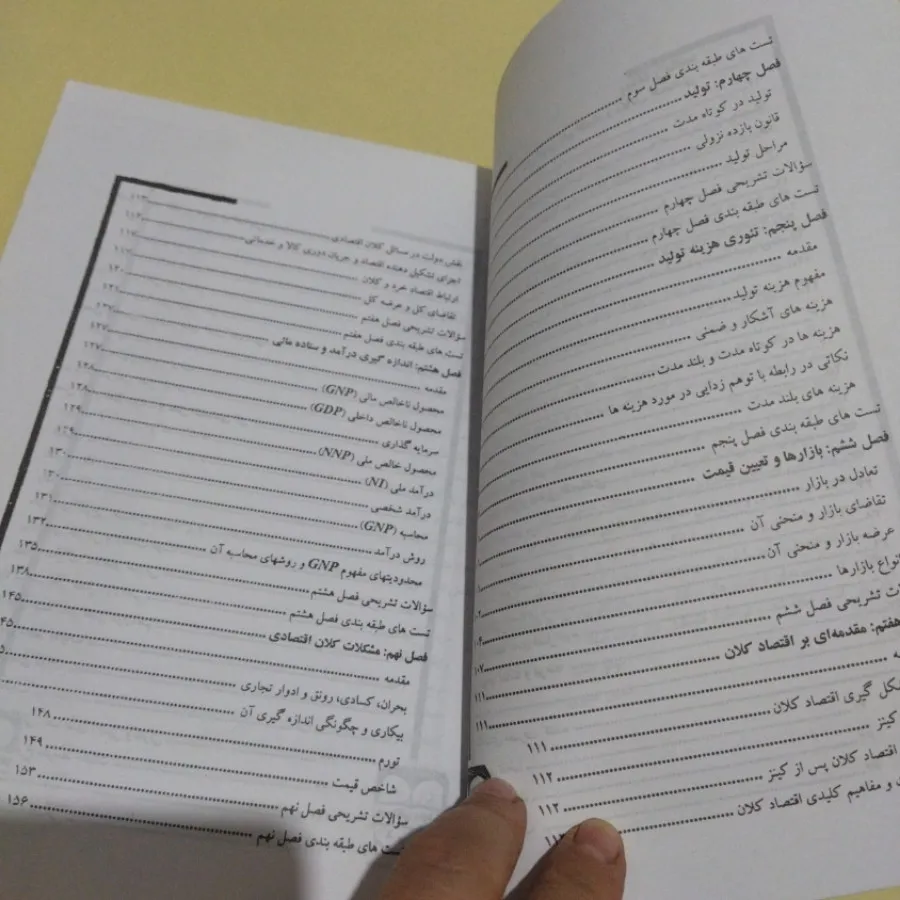 تست های طبقه بندی فصل سوم
فصل چهارم: تولید
تولید در کوتاه مدت
قانون بازده نزولی
مراحل تولید
سؤالات تشریحی فصل چهارم
تست های طبقه بندی فصل چهارم
فصل پنجم: تئوری هزینه تولید
مقدمه
مفهوم هزینه تولید
هزینه های آشکار و ضمنی
هزینه ها در کوتاه مدت و بلند مدت
نکاتی در رابطه با توهم زدایی در مورد هزینه ها
هزینه های بلند مدت
تست های طبقه بندی فصل پنجم
فصل ششم: بازارها و تعیین قیمت
تعادل در بازار
تقاضای بازار و منحنی آن
عرضه بازار و منحنی آن
نواع بازارها
ت تشریحی فصل ششم
هفتم: مقدمه‌ای بر اقتصاد کلان ۱۰۷
۱۱۱
کل گیری اقتصاد کلان ۱۱۱
کینز ۱۱۱
اقتصاد کلان پس از کینز ۱۱۲
و مفاهیم کلیدی اقتصاد کلان ۱۱۲
نقش دولت در مسائل کلان اقتصادی ۱۱۳
اجزای تشکیل دهنده اقتصاد و جریان دوری کالا و خدماتی ۱۱۴
ارتباط اقتصاد خرد و کلان ۱۱۷
تقاضای کل و عرضه کل
سؤالات تشریحی فصل هفتم ۱۲۰
تست های طبقه بندی فصل هفتم ۱۲۱
فصل هشتم: اندازه گیری درآمد و ستاده مالی ۱۲۷
مقدمه ۱۲۷
محصول ناخالص مالی (GNP) ۱۲۷
محصول ناخالص داخلی (GDP) ۱۲۸
سرمایه گذاری ۱۲۸
محصول خالص ملی (NNP) ۱۲۹
درآمد ملی (NI) ۱۲۹
درآمد شخصی ۱۳۰
محاسبه (GNP) ۱۳۰
روش درآمد ۱۳۱
محدودیتهای مفهوم GNP و روشهای محاسبه آن ۱۳۲
سؤالات تشریحی فصل هشتم ۱۳۵
تست های طبقه بندی فصل هشتم ۱۳۸
فصل نهم: مشکلات کلان اقتصادی ۱۴۵
مقدمه ۴۵
بحران، کسادی، رونق و ادوار تجاری ۵
بیکاری و چگونگی اندازه گیری آن
تورم ۱۴۸
شاخص قیمت ۱۴۹
سؤالات تشریحی فصل نهم ۱۵۳
تست های طبقه بندی فصل نهم ۱۵۶